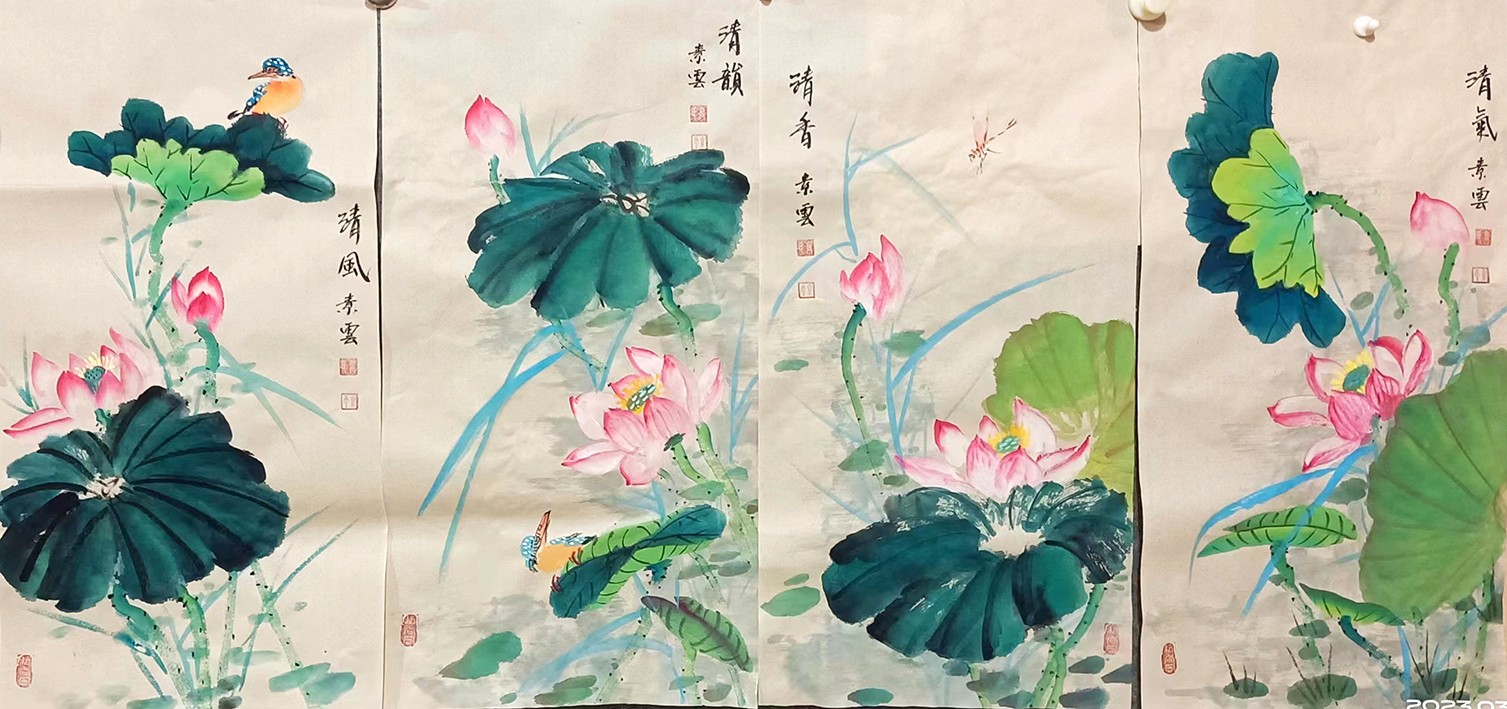 清風
素雲
清韻
素雲
清香
素雲
清氣
素雲
2023.03